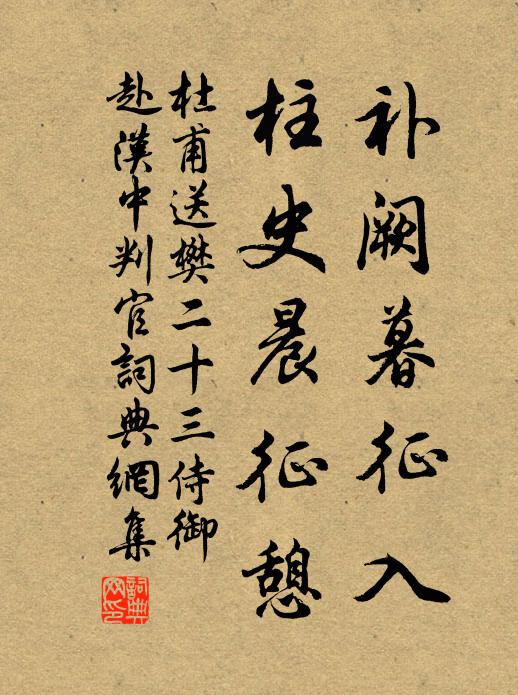 补阙暮征入
柱史晨征憩
杜甫送樊二十三侍御
赴漢中判官詞典網集
詞典
网印